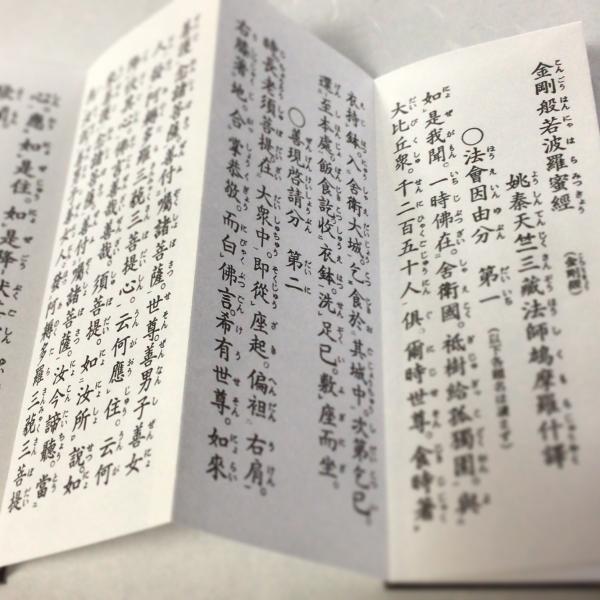 金剛般若波羅蜜經
(金剛經)
姚秦天竺三藏法師鳩摩羅什譯
〇法會因由分　第一
如是我聞。一時佛在。舍衛國。祇樹給孤獨園。與
大比丘衆。千二百五十人俱。爾時世尊。食時著
衣持鉢。入舍衛大城。乞食於其城中。次第乞已。
還至本處。飯食訖收衣鉢。洗足已。敷座而坐。
〇善現啓請分　第二
時長老須菩提。在大衆中。即從座起。偏袒右肩。
右膝著地。合掌恭敬。而白佛言。希有世尊。如來
善護念諸菩薩。善付囑諸菩薩。世尊。善男子善女
人。發阿耨多羅三藐三菩提心。云何應住。云何
降伏其心。佛言。善哉善哉。須菩提。如汝所説。如
付囑諸菩薩。汝今諦聽。當
人。發阿耨多羅三藐三菩提
心。應如是住。如是降伏